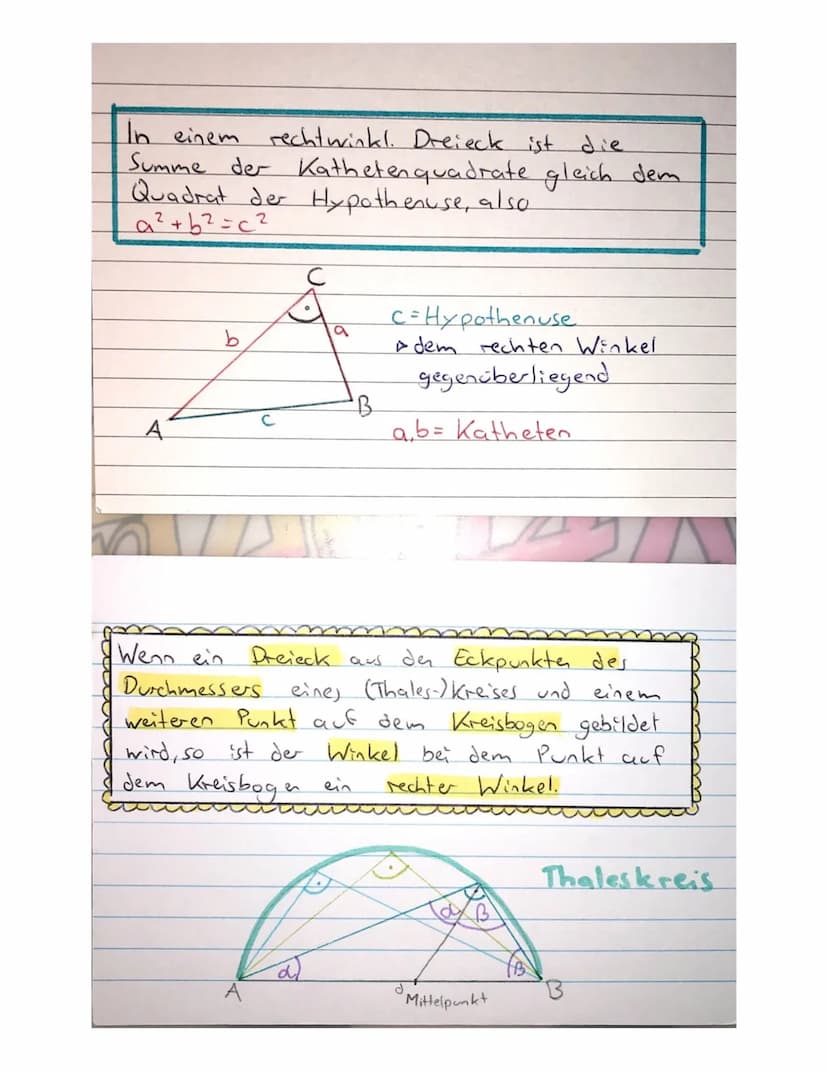 In einem rechtwinkl. Dreieck ist die
Summe der Kathetenquadrate gleich dem
Quadrat der Hypothenuse, also
a² + b² = c²
C
b
a
A
c
B
c = Hypothenuse
▹ dem rechten Winkel
gegenüberliegend
a,b = Katheten
Wenn ein Dreieck aus den Eckpunkten des
Durchmessers eines (Thales-)Kreises und einem
weiteren Punkt auf dem Kreisbogen gebildet
wird, so ist der Winkel bei dem Punkt auf
dem Kreisbogen ein rechter Winkel.
Thaleskreis
α β
α
β
A
d
Mittelpunkt
B